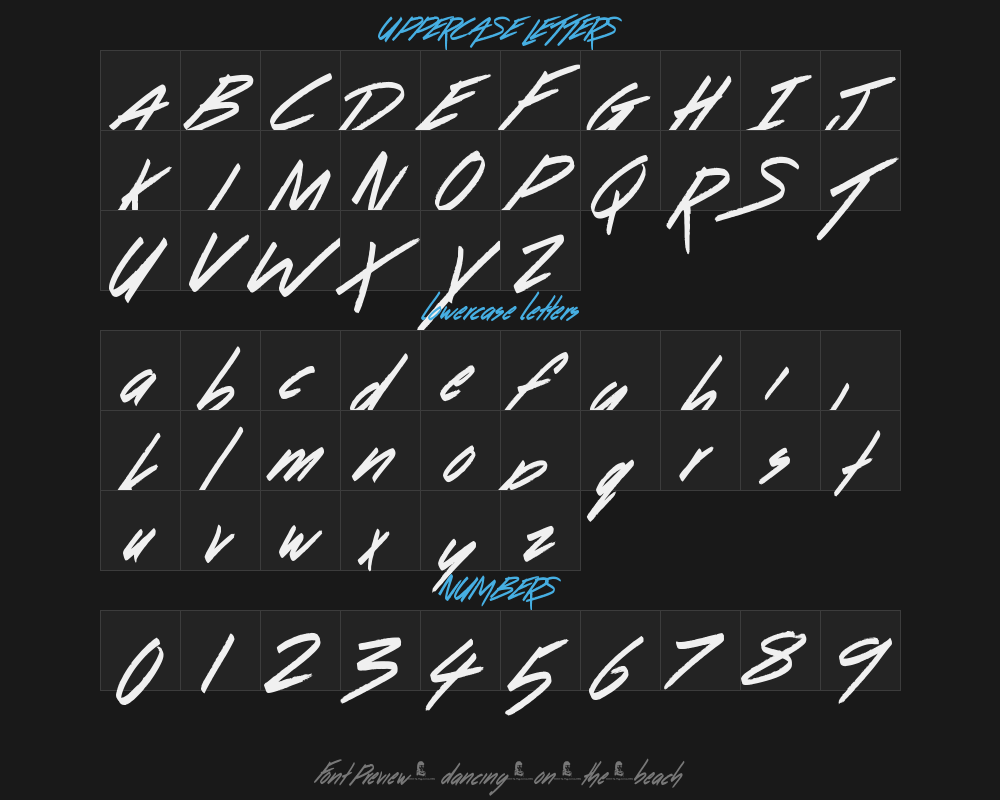 UPPERCASE LETTERS
A B C D E F G H I J
K L M N O P Q R S T
U V W X Y Z
lowercase letters
a b c d e f g h i j
k l m n o p q r s t
u v w x y z
NUMBERS
0 1 2 3 4 5 6 7 8 9
Font Preview dancing on the beach